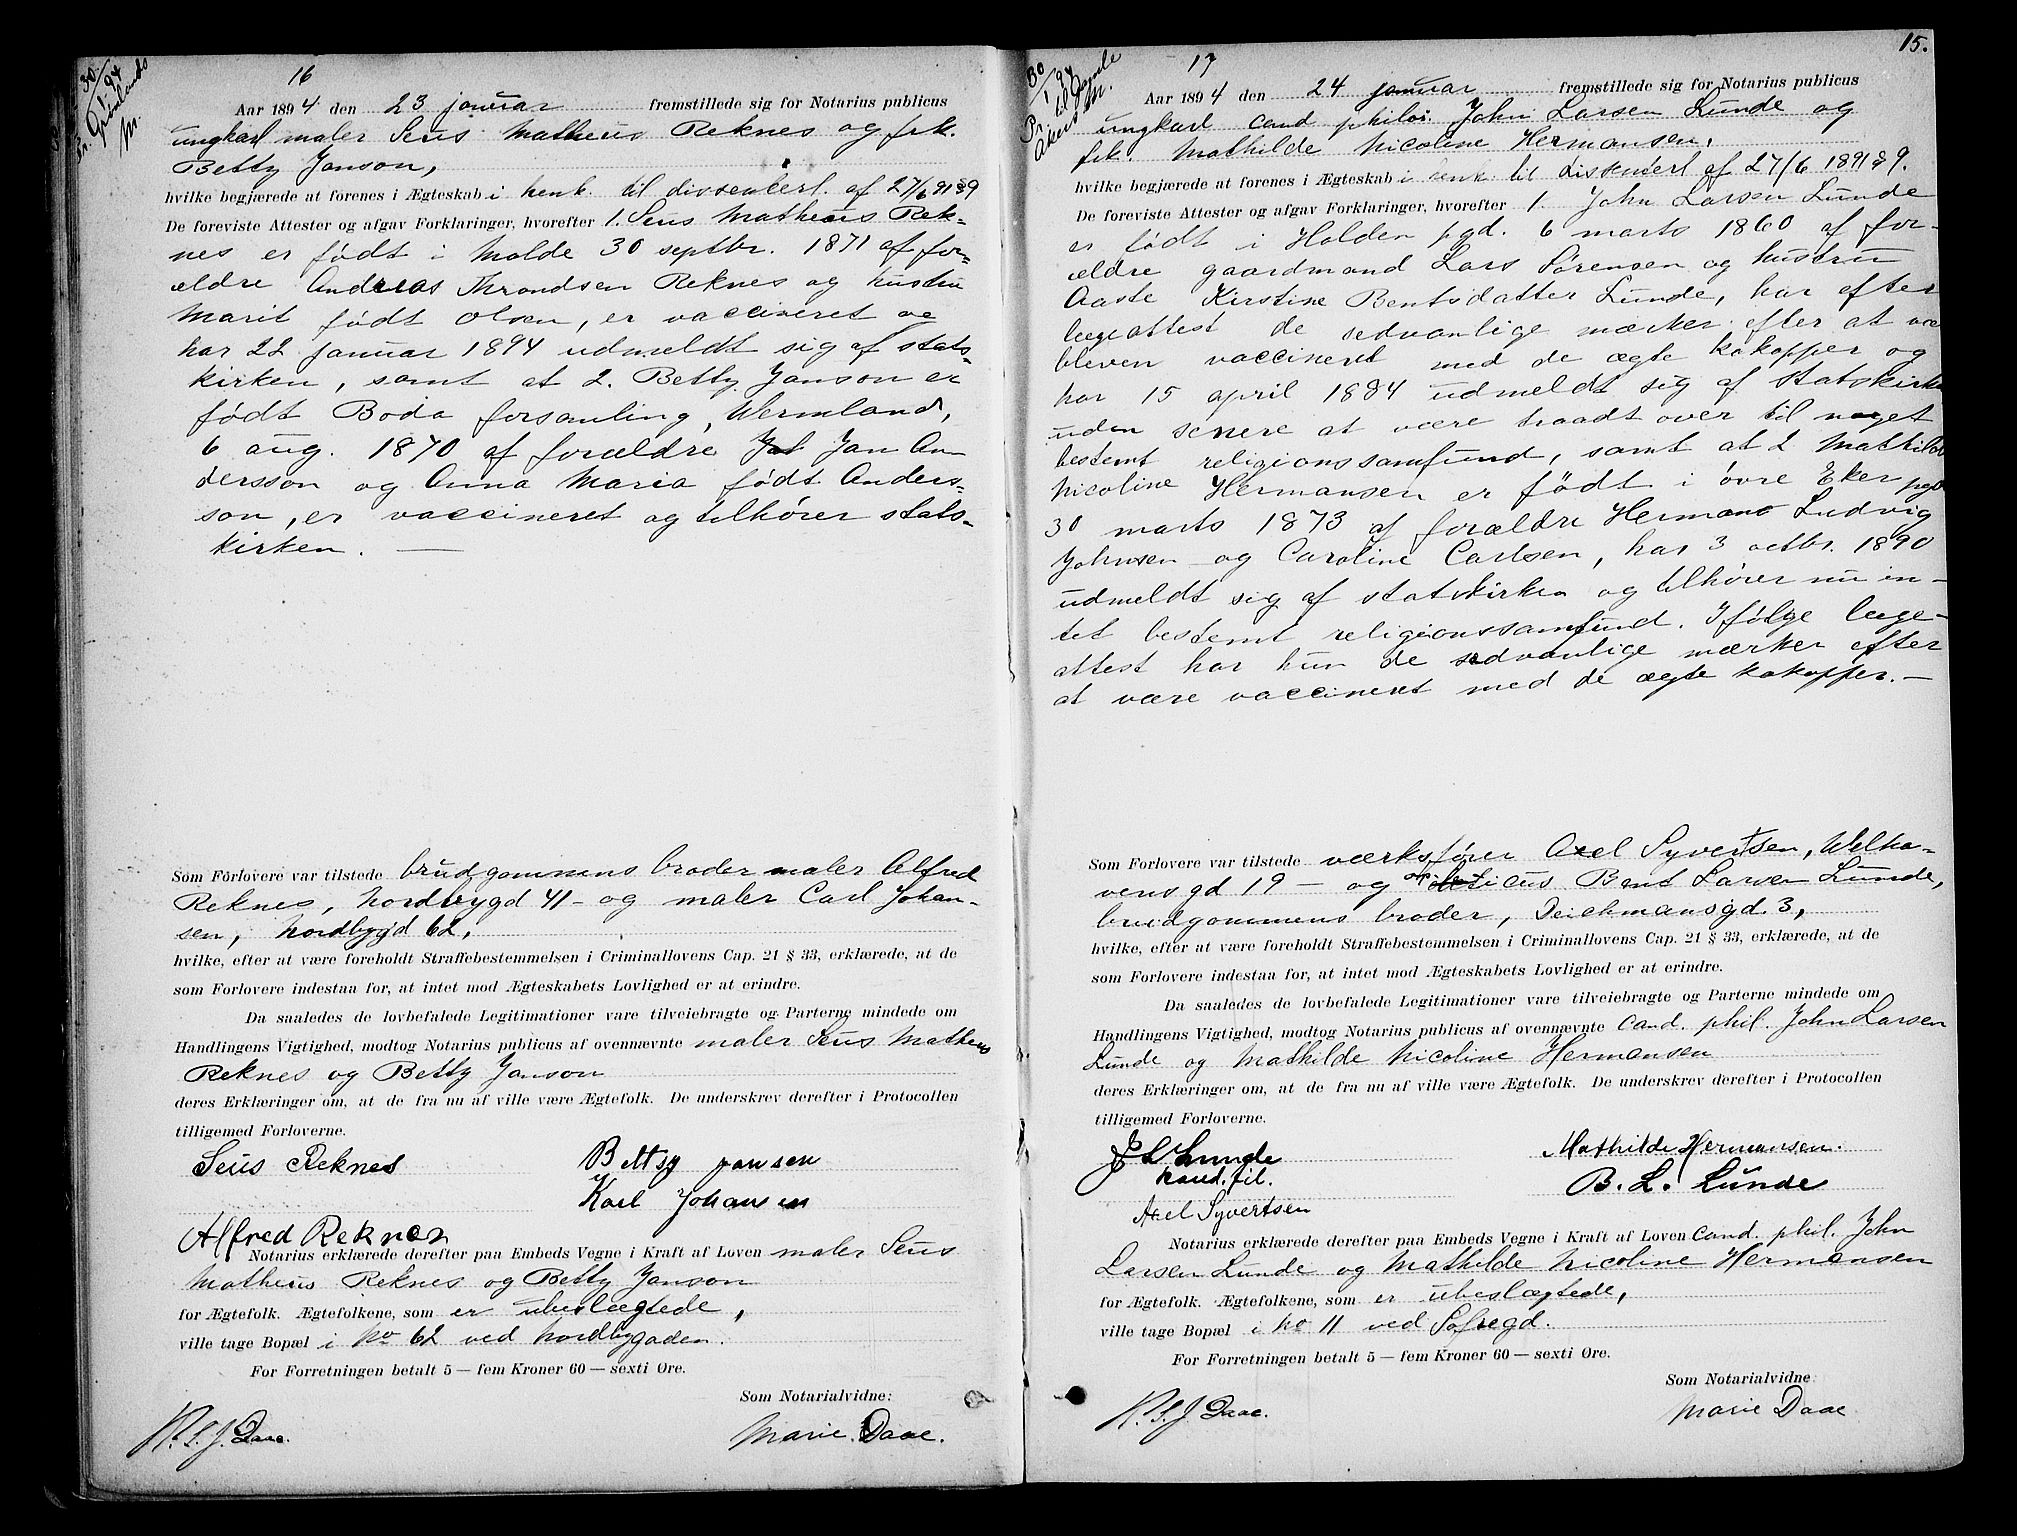 30/1 94
Pr. Grønlands
M.
16
Aar 1894 den 23 januar fremstillede sig for Notarius publicus
ungkarl maler Seus Matheus Reknes og frk.
Betty Janson,
hvilke begjærede at forenes i Ægteskab i henh. til dissenterl. af 27/6 91 § 9
De foreviste Attester og afgav Forklaringer, hvorefter 1. Seus Matheus Rek-
nes er født i Molde 30 septbr. 1871 af for-
ældre Andreas Throndsen Reknes og hustru
Marit født Olsen, er vaccineret og
har 22 januar 1894 udmeldt sig af stats-
kirken, samt at 2. Betty Janson er
født Boda forsamling, Wermland,
6 aug. 1870 af forældre Jan An-
dersson og Anna Maria født Anders-
son, er vaccineret og tilhører stats-
kirken. —
Som Forlovere var tilstede brudgommens broder maler Alfred
Reknes, Nordbygd 41 - og maler Carl Johan-
sen, Nordbygd 62,
hvilke, efter at være foreholdt Straffebestemmelsen i Criminallovens Cap. 21 § 33, erklærede, at de
som Forlovere indestaa for, at intet mod Ægteskabets Lovlighed er at erindre.
Da saaledes de lovbefalede Legitimationer vare tilveiebragte og Parterne mindede om
Handlingens Vigtighed, modtog Notarius publicus af ovennævnte maler Seus Matheus
Reknes og Betty Janson
deres Erklæringer om, at de fra nu af ville være Ægtefolk. De underskrev derefter i Protocollen
tilligemed Forloverne.
Seus Reknes Bettsy jansen
Karl Johansen
Alfred Reknes
Notarius erklærede derefter paa Embeds Vegne i Kraft af Loven maler Seus
Matheus Reknes og Betty Janson
for Ægtefolk. Ægtefolkene, som er ubeslægtede,
ville tage Bopæl i No 62 ved Nordbygaden.
For Forretningen betalt 5 — fem Kroner 60 — sexti Øre.
Som Notarialvidne:
K.S.J. Daae. Marie Daae.
15.
30/1 94
Pr. til Gamle
Akers M.
17
Aar 1894 den 24 januar fremstillede sig for Notarius publicus
ungkarl cand philos. John Larsen Lunde og
frk. Mathilde Nicoline Hermansen,
hvilke begjærede at forenes i Ægteskab i henh. til dissenterl af 27/6 1891 § 9.
De foreviste Attester og afgav Forklaringer, hvorefter 1. John Larsen Lunde
er født i Holden pgd. 6 marts 1860 af for-
ældre gaardmand Lars Sørensen og hustru
Aaste Kirstine Bentsdatter Lunde, har efter
lægeattest de sedvanlige mærker efter at være
bleven vaccineret med de ægte kokopper og
har 15 april 1884 udmeldt sig af statskirken
uden senere at være traadt over til noget
bestemt religionssamfund, samt at 2 Mathilde
Nicoline Hermansen er født i øvre Eker pgd
30 marts 1873 af forældre Herman Ludvig
Johnsen og Caroline Carlsen, har 3 octbr. 1890
udmeldt sig af statskirken og tilhører nu in-
tet bestemt religionssamfund. Ifølge læge-
attest har hun de sædvanlige mærker efter
at være vaccineret med de ægte kokopper. —
Som Forlovere var tilstede værksfører Axel Syvertsen, Welha-
vens gd 19 - og opticus Bent Larsen Lunde,
brudgommens broder, Deichmansgd. 3,
hvilke, efter at være foreholdt Straffebestemmelsen i Criminallovens Cap. 21 § 33, erklærede, at de
som Forlovere indestaa for, at intet mod Ægteskabets Lovlighed er at erindre.
Da saaledes de lovbefalede Legitimationer vare tilveiebragte og Parterne mindede om
Handlingens Vigtighed, modtog Notarius publicus af ovennævnte cand. phil. John Larsen
Lunde og Mathilde Nicoline Hermansen
deres Erklæringer om, at de fra nu af ville være Ægtefolk. De underskrev derefter i Protocollen
tilligemed Forloverne.
J L Lunde Mathilde Hermansen.
kand. fil. B. L. Lunde
Axel Syvertsen
Notarius erklærede derefter paa Embeds Vegne i Kraft af Loven cand. phil. John
Larsen Lunde og Mathilde Nicoline Hermansen
for Ægtefolk. Ægtefolkene, som er ubeslægtede,
ville tage Bopæl i No 11 ved Sofiegd.
For Forretningen betalt 5 — fem Kroner 60 — sexti Øre.
Som Notarialvidne
K.S.J Daae. Marie Daae